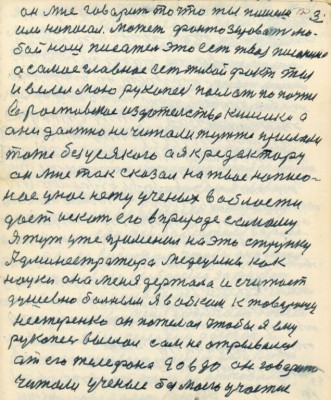 он мне говорит то что ты пишеш 3.
или написал. может фантозировать лю-
бой наш писател это ест твоя писанина
а самое главное ест живой факт ты
и велел мою рукопеs послат по почте
в ростовское издотелство книшка а
ани должно не читали тут же прислали
тоже безусякого а я к редактору
он мне так сказал на твое напис-
ное уное нету ученых в области
дают искат его в природе самому
Я тут уже применил на это струнку
Администратора медецыны как
науки она меня держала и считает
душевно болным Я в обком к товарищу
нестеренко он пожелал чтобы я ему
рукопес выслал сам не отрывался
от его телефона 90 690 он говорит
читали ученые без моего участие